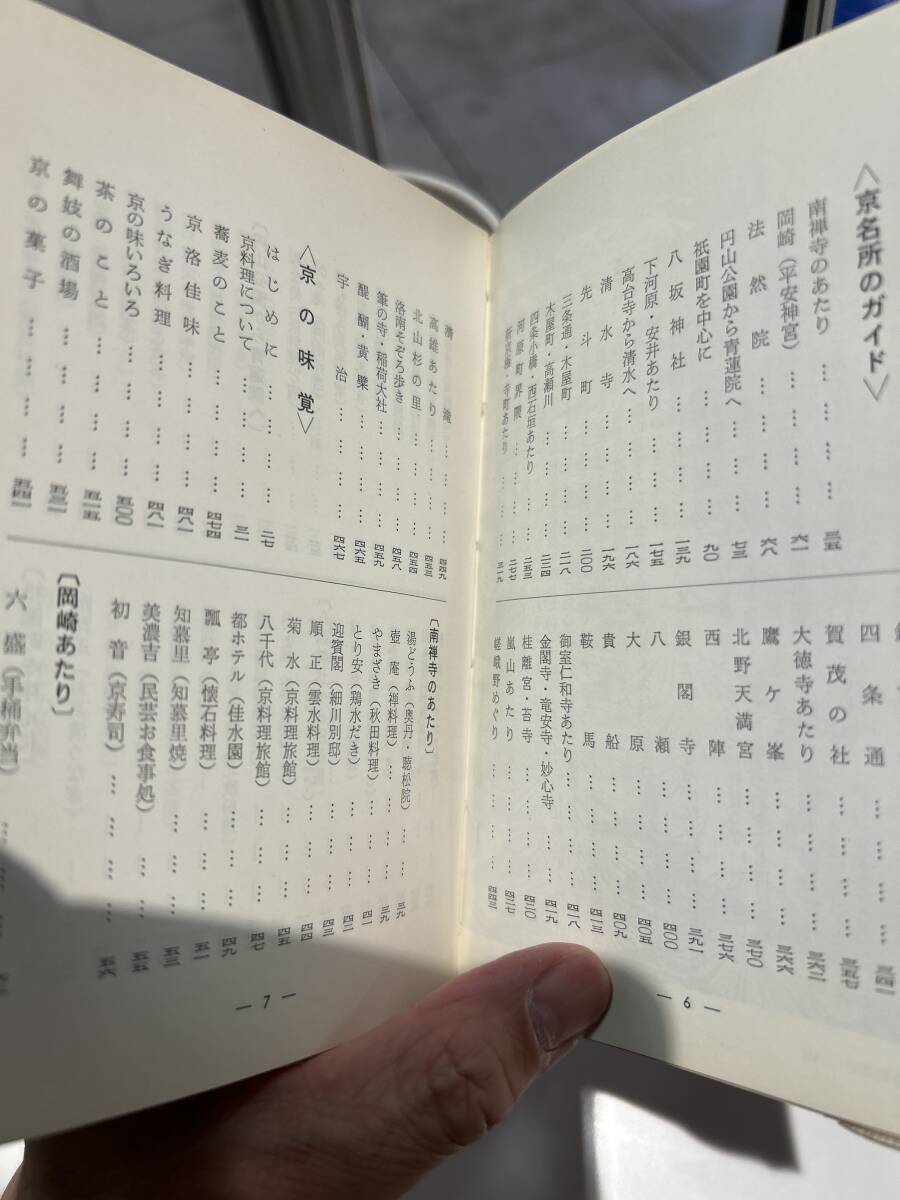 〈京名所のガイド〉
南禅寺のあたり … … … 三五
岡崎(平安神宮) … … … 六一
法然院 … … … 六八
円山公園から青蓮院へ … … 七三
祇園町を中心に … … … 九〇
八坂神社 … … … 一三九
下河原・安井あたり … … 一七五
高台寺から清水へ … … 一八六
清水寺 … … … 一九六
先斗町 … … … 二〇〇
三条通・木屋町 … … … 二一八
木屋町・高瀬川 … … … 二三四
四条小橋・西石垣あたり … … 二五三
河原町界隈 … … … 二七七
新京極・寺町あたり … … 三一九
四条通 … … … 三四一
賀茂の社 … … … 三五七
大徳寺あたり … … … 三六二
鷹ヶ峯 … … … 三六六
北野天満宮 … … … 三七〇
西陣 … … … 三七六
銀閣寺 … … … 三九一
八瀬 … … … 四〇〇
大原 … … … 四〇五
貴船 … … … 四〇九
鞍馬 … … … 四一三
御室仁和寺あたり … … … 四一八
金閣寺・竜安寺・妙心寺 … … 四一九
桂離宮・苔寺 … … … 四二〇
嵐山あたり … … … 四二七
嵯峨野めぐり … … … 四四三
― 6 ―
清滝 … … … 四四九
高雄あたり … … … 四五三
北山杉の里 … … … 四五四
洛南そぞろ歩き … … … 四五八
筆の寺・稲荷大社 … … … 四五九
醍醐・黄檗 … … … 四六五
宇治 … … … 四六七
〈京の味覚〉
はじめに … … … 二七
京料理について … … … 三一
蕎麦のこと … … … 四七四
京洛佳味 … … … 四八一
うなぎ料理 … … … 四八一
京の味いろいろ … … … 五〇〇
茶のこと … … … 五一五
舞妓の酒場 … … … 五三一
京の菓子 … … … 五四一
〔南禅寺のあたり〕
湯どうふ(奥丹・聴松院) … … 三九
壺庵(禅料理) … … … 三九
やまざき(秋田料理) … … 四一
とり安(鶏水だき) … … … 四二
迎賓閣(細川別邸) … … … 四三
順正(雲水料理) … … … 四四
菊水(京料理旅館) … … … 四五
八千代(京料理旅館) … … … 四七
都ホテル(佳水園) … … … 四九
瓢亭(懐石料理) … … … 五一
知慕里(知慕里焼) … … … 五三
美濃吉(民芸お食事処) … … 五五
初音(京寿司) … … … 五六
〔岡崎あたり〕
六盛(手桶弁当) … … …
― 7 ―